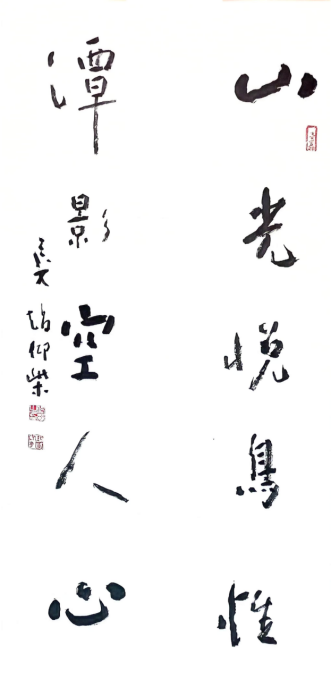 山光悦鳥性
潭影空人心
仰柴